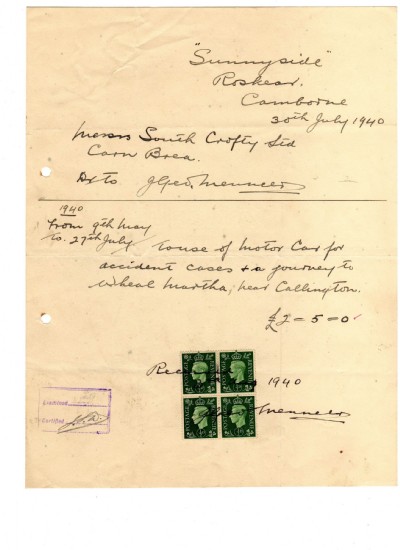 "Sunnyside"
Roskear.
Camborne
30th July 1940
Messrs South Crofty Ltd
Carn Brea.
Dr to J Geo. Menneer
1940
From 9th May
to 27th July
To use of Motor Car for
accident cases + a journey to
Wheal Martha, near Callington.
£2=5=0
1940
Menneer
POSTAGE
Examined
Certified